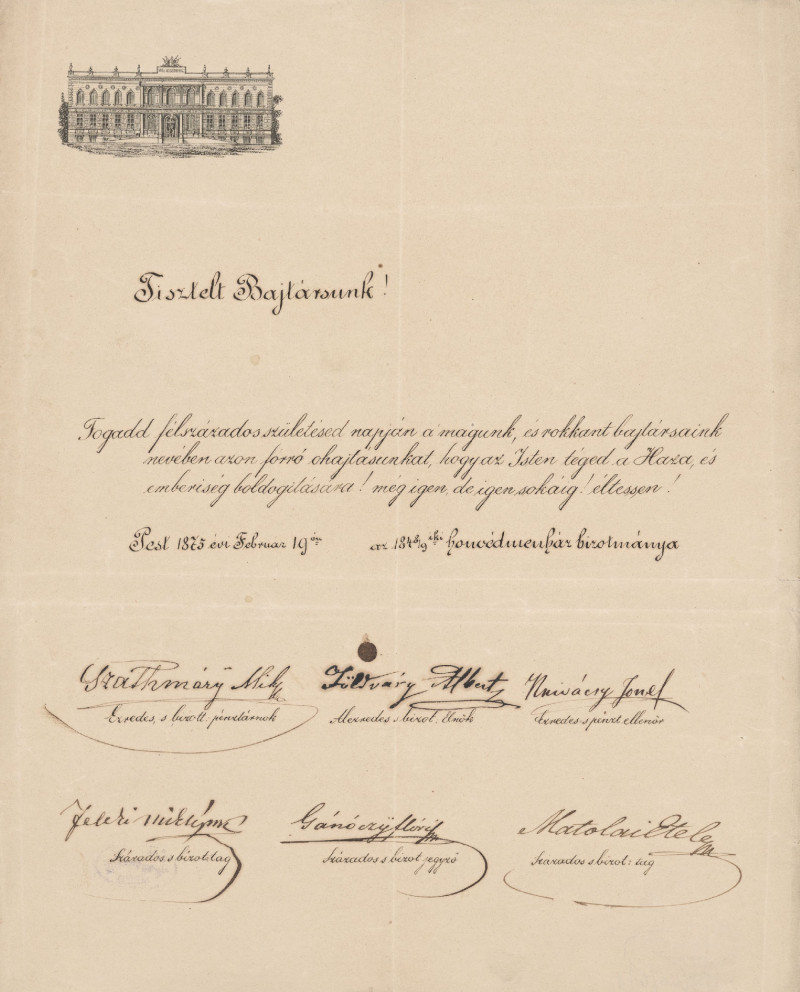 Tisztelt Bajtársunk!
Fogadd félszázados születésed napján a magunk, és rokkant bajtársaink
nevében azon forró ohajtásunkat, hogy az Isten téged a Haza, és
emberiség boldogitására! még igen, de igen sokáig! éltessen!
Pest 1875 évi Februar 19én az 1848/9iki honvédmenház bizotmánya
Szathmáry Mik
Földváry Albert
Ezredes, s bizott. pénztárnok
Alezredes s bizot. Elnök
Ezredes s pénzt ellenőr
Gánóczy Flóris
Matolai Etele
Százados s bizot. tag
Százados s bizot jegyző
Százados s bizot: tag